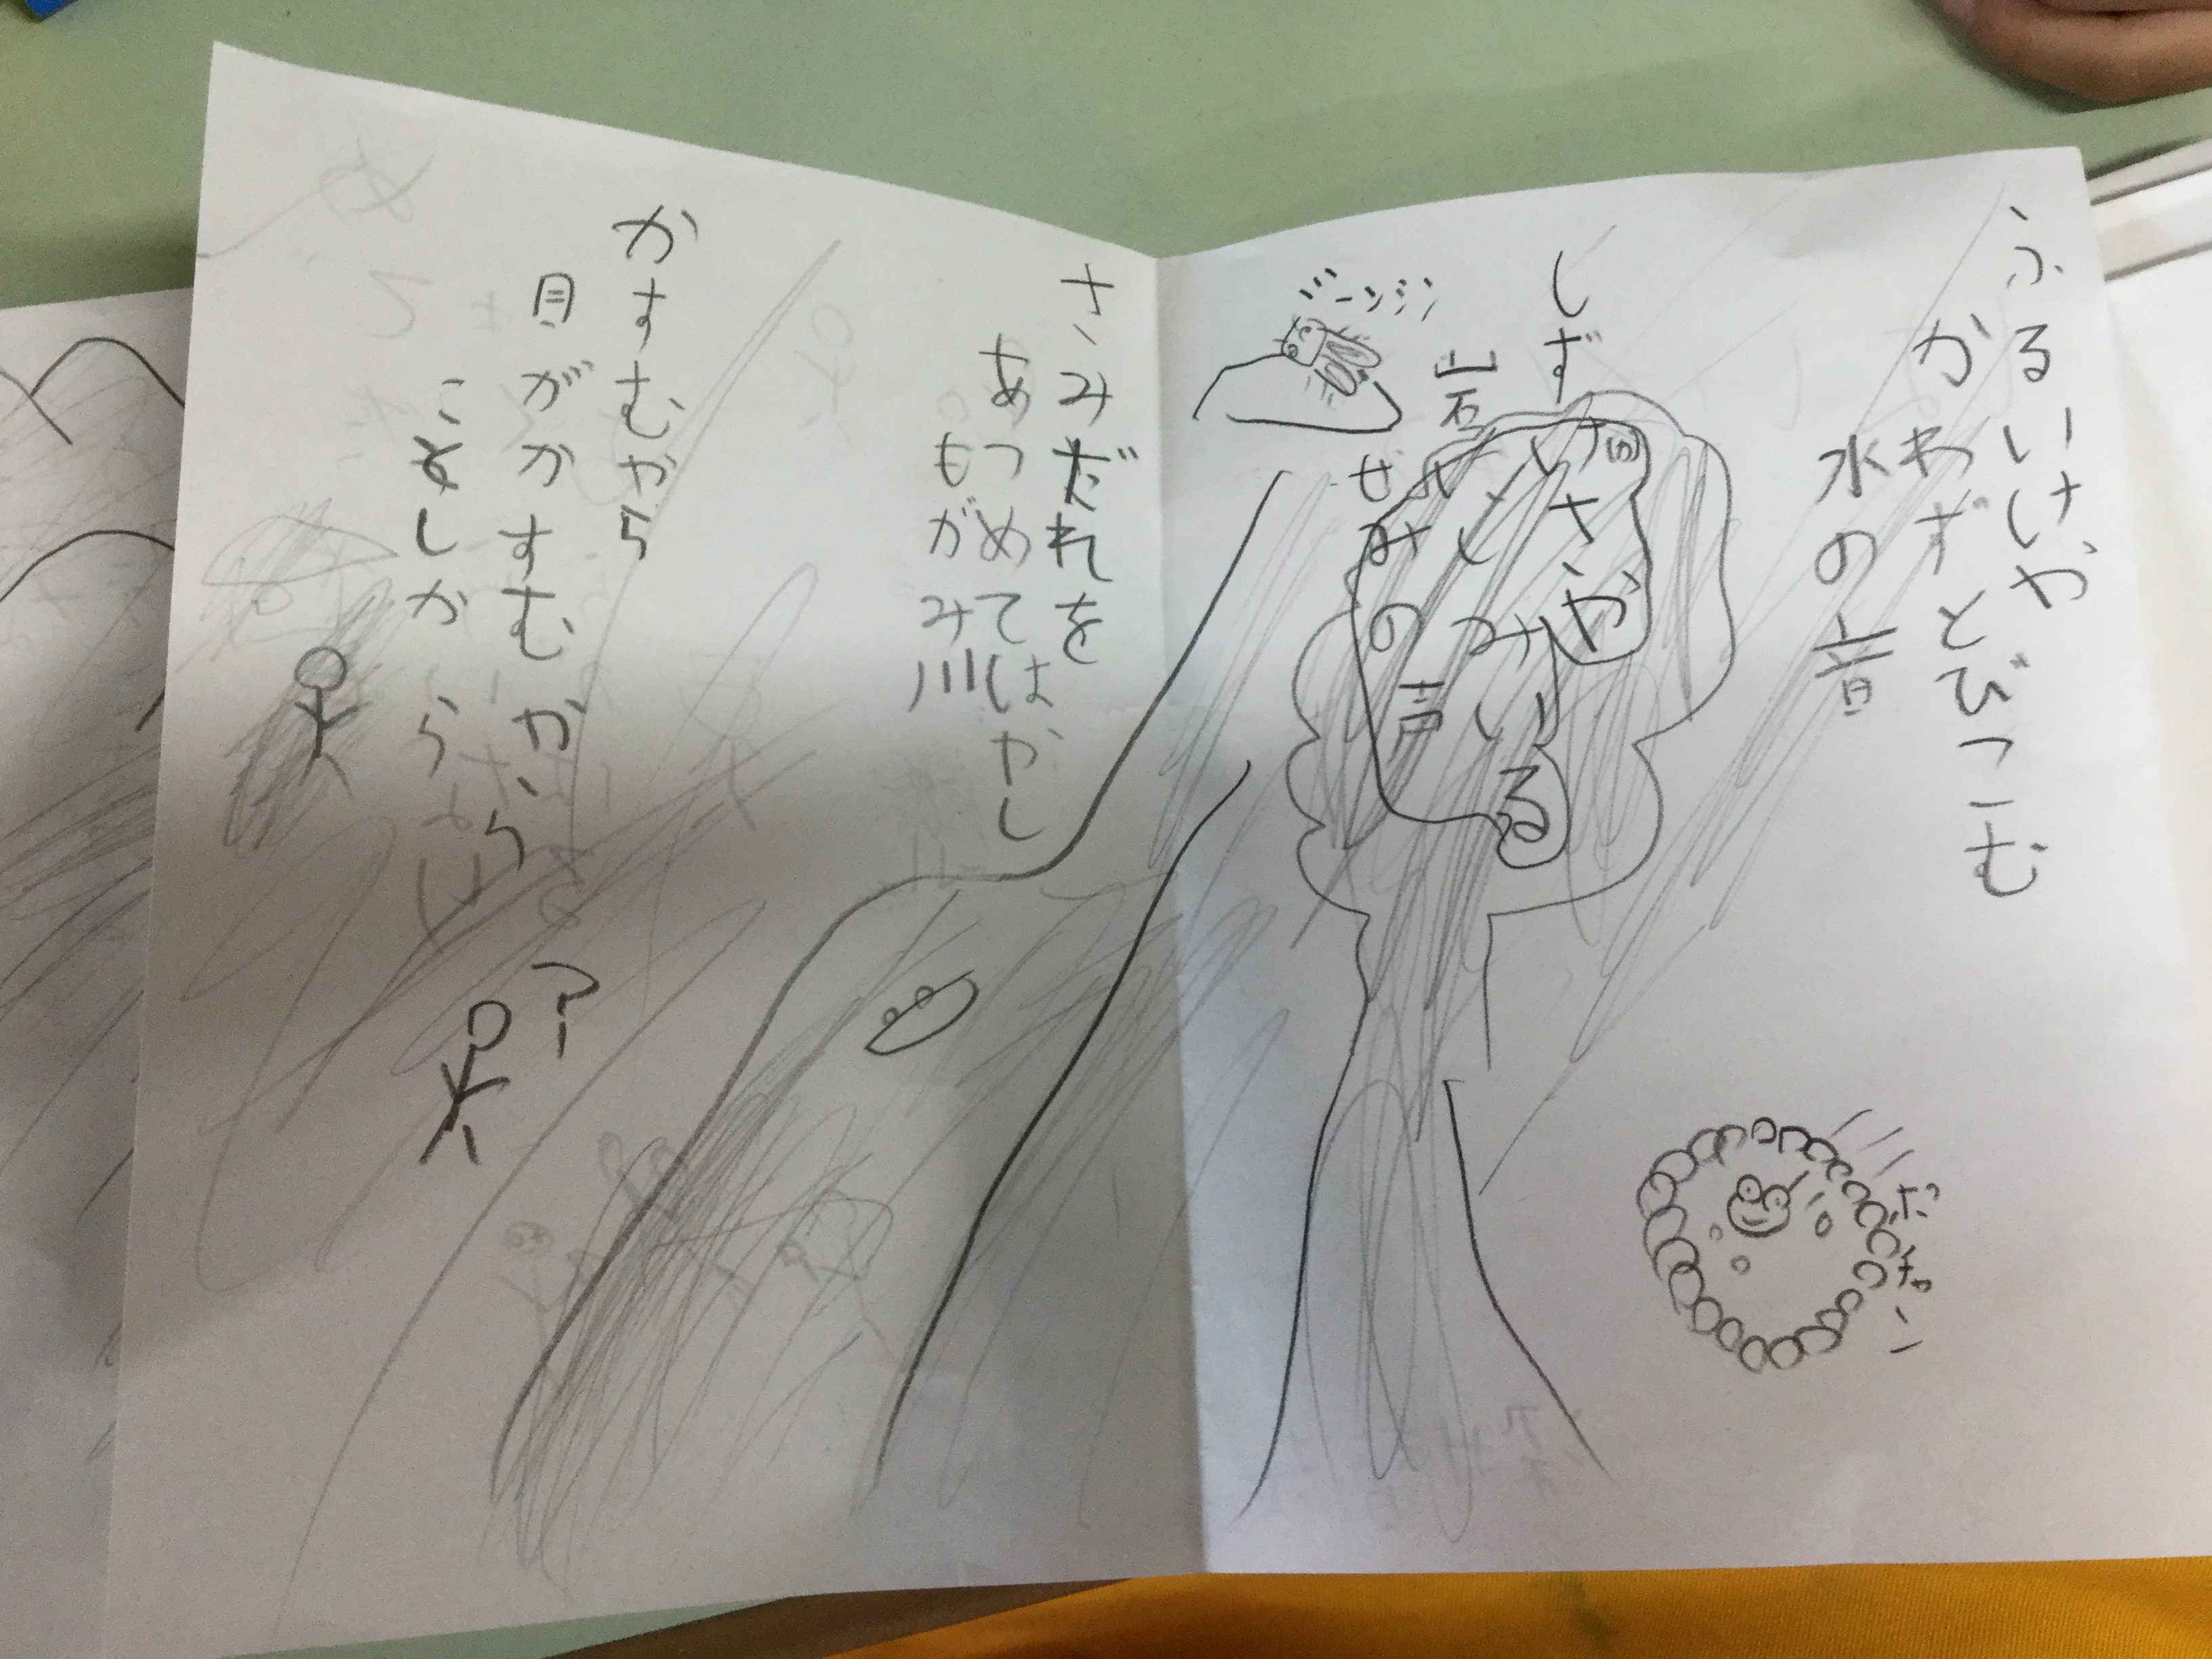 ふるいけや
かわずとびこむ
水の音
しずけさや
岩にしみいる
せみの声
ミーンミン
さみだれを
あつめてはやし
もがみ川
かすむやら
目がかすむやら
ことしから
?